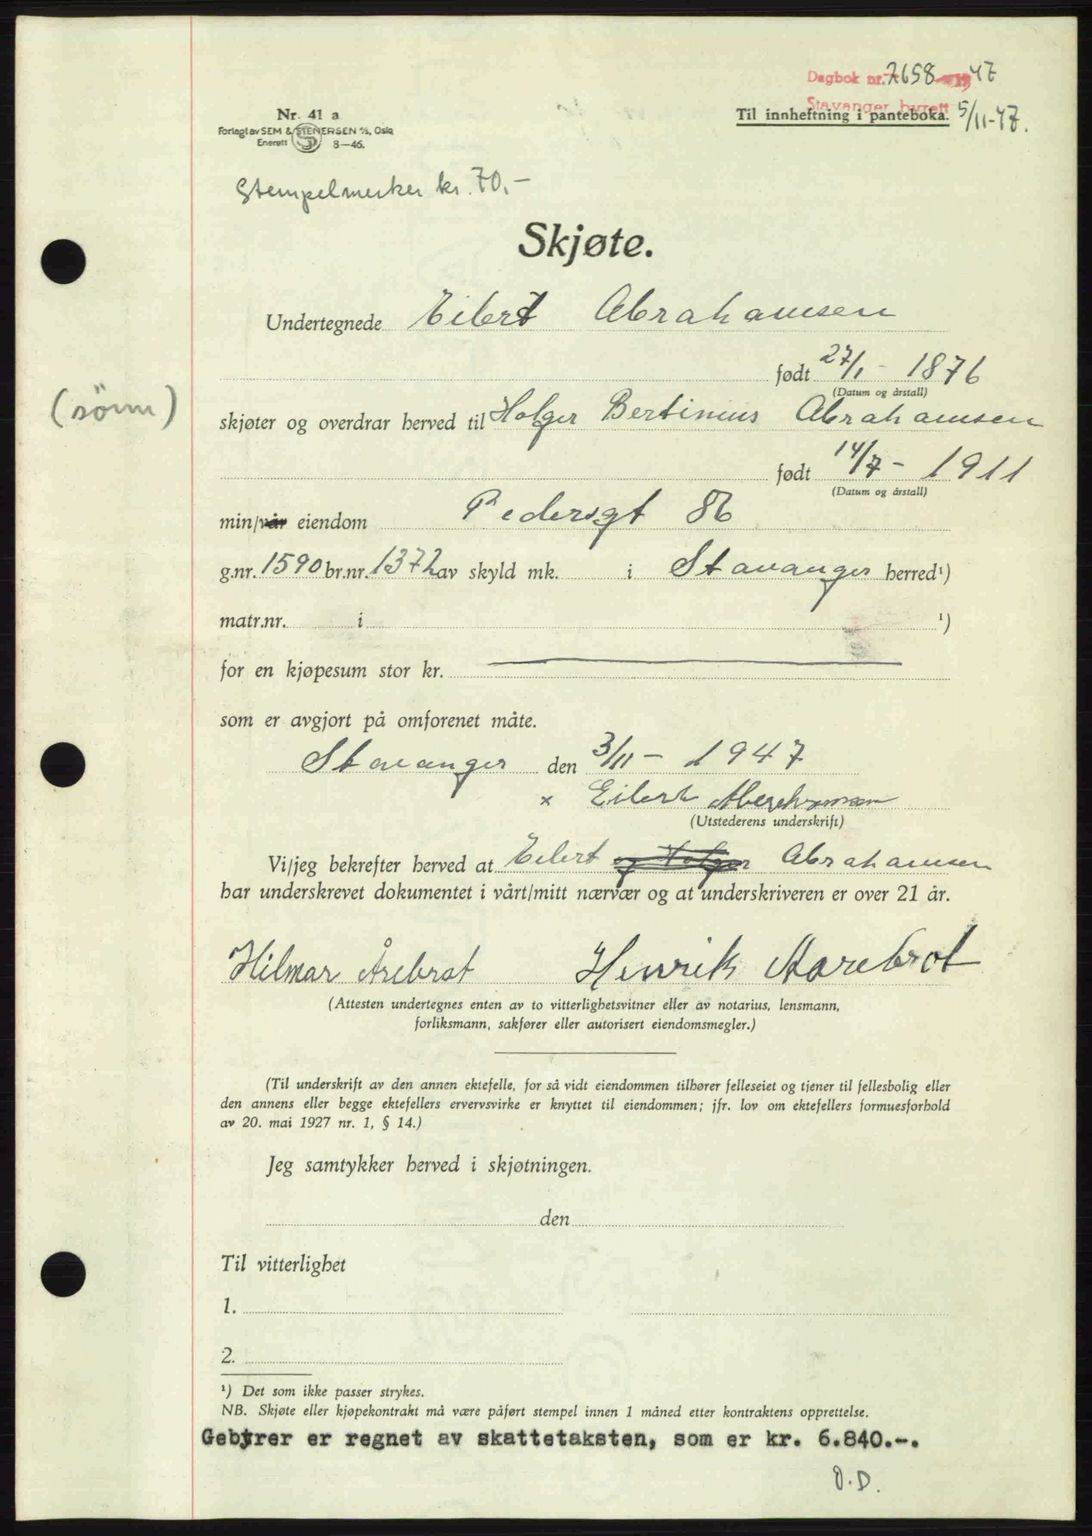 Dagbok nr. 7658 1947
Stavanger byrett
Til innheftning i panteboka. 5/11-47.
Nr. 41 a
Forlagt av SEM & STENERSEN A/S, Oslo
Enerett 8—46.
Stempelmerker kr. 70,-
Skjøte.
Undertegnede Eilert Abrahamsen
født 27/1 - 1876
(Datum og årstall)
(sönn)
skjøter og overdrar herved til Holger Bertinius Abrahamsen
født 14/7 - 1911
(Datum og årstall)
min/vår eiendom Pedersgt 86
g.nr. 1590 br.nr. 1372 av skyld mk. i Stavanger herred¹)
matr.nr. i ¹)
for en kjøpesum stor kr.
som er avgjort på omforenet måte.
Stavanger den 3/11 - 1947
x Eilert Abrahamsen
(Utstederens underskrift)
Vi/jeg bekrefter herved at Eilert og Holger Abrahamsen
har underskrevet dokumentet i vårt/mitt nærvær og at underskriveren er over 21 år.
Hilmar Årebrot Henrik Aarebrot
(Attesten undertegnes enten av to vitterlighetsvitner eller av notarius, lensmann,
forliksmann, sakfører eller autorisert eiendomsmegler.)
(Til underskrift av den annen ektefelle, for så vidt eiendommen tilhører felleseiet og tjener til fellesbolig eller
den annens eller begge ektefellers ervervsvirke er knyttet til eiendommen; jfr. lov om ektefellers formuesforhold
av 20. mai 1927 nr. 1, § 14.)
Jeg samtykker herved i skjøtningen.
den
Til vitterlighet
1.
2.
¹) Det som ikke passer strykes.
NB. Skjøte eller kjøpekontrakt må være påført stempel innen 1 måned etter kontraktens opprettelse.
Gebyrer er regnet av skattetaksten, som er kr. 6.840.-.
O.D.